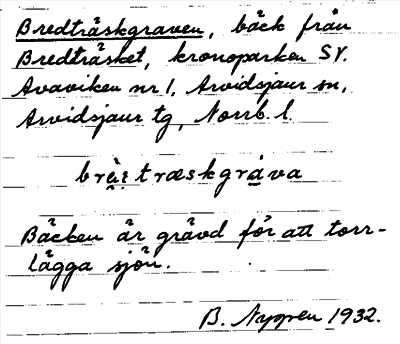 Bredträskgraven, bäck från
Bredträsket, kronoparken SV.
Avaviken nr 1, Arvidsjaur sn,
Arvidsjaur tg, Norrb. l.
Bäcken är grävd för att torr-
lägga sjön.
B. Nygren 1932.